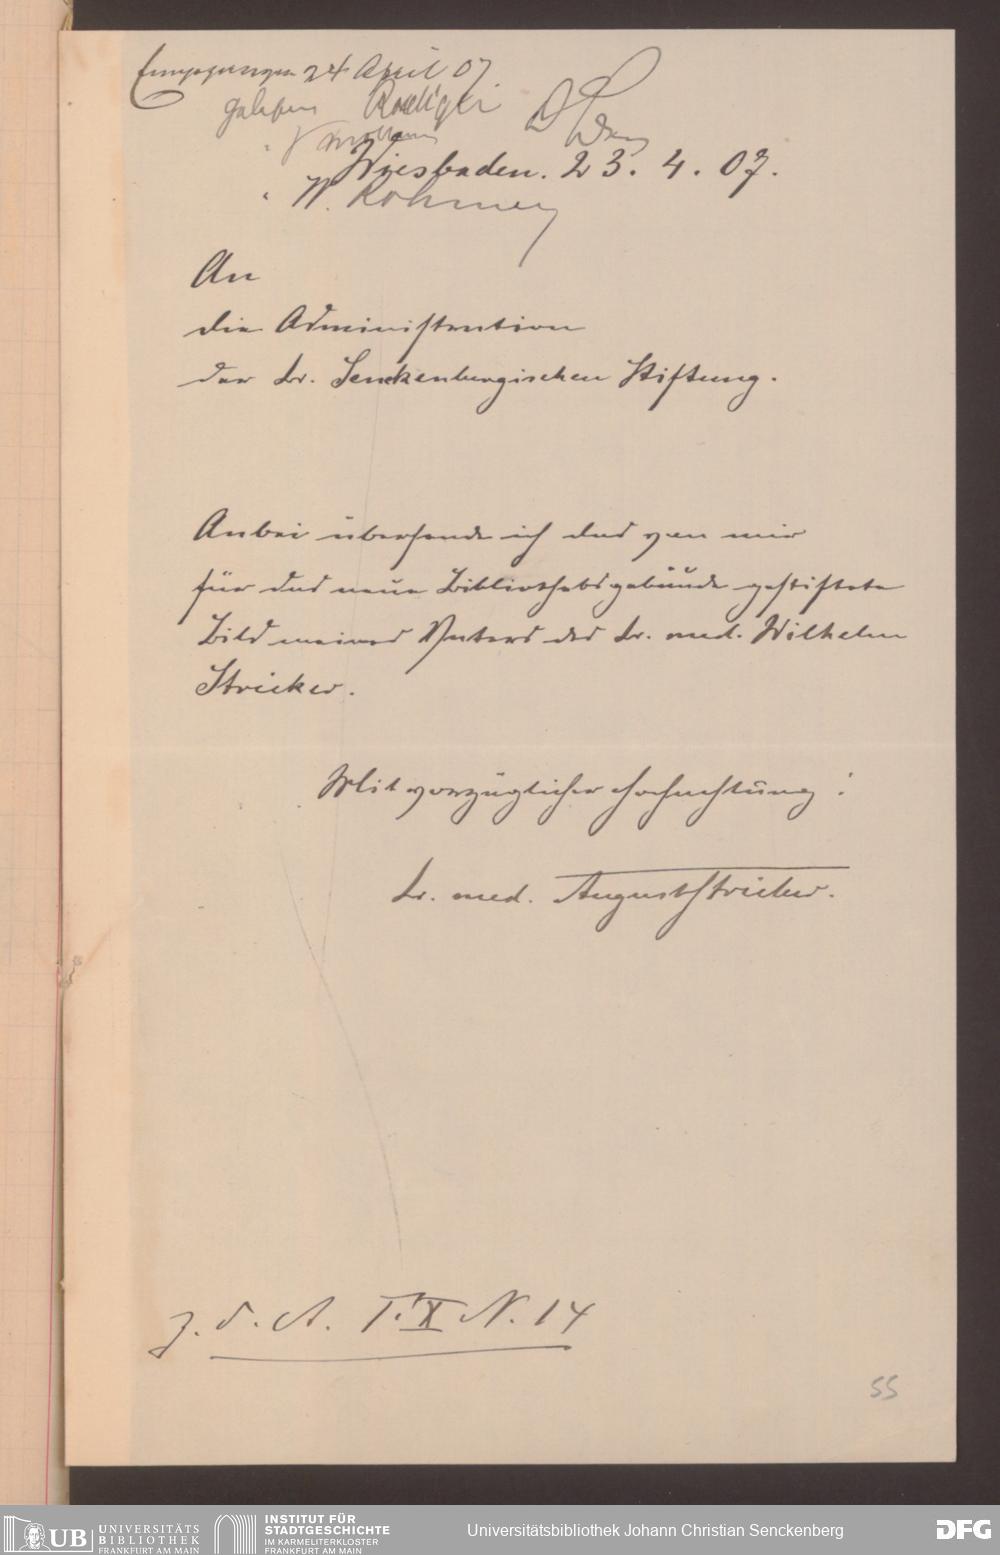 Eingegangen 24 April 07
gelesen Roediger
" W. Rohmer
Wiesbaden. 23. 4. 07.
An
die Administration
der Dr. Senckenbergischen Stiftung.
Anbei übersende ich das von mir
für das neue Bibliotheksgebäude gestiftete
Bild meines Vaters des Dr. med. Wilhelm
Stricker.
Mit vorzüglicher Hochachtung:
Dr. med. August Stricker.
z. d. A. T. X N. 14
55
UB UNIVERSITÄTS
BIBLIOTHEK
FRANKFURT AM MAIN
INSTITUT FÜR
STADTGESCHICHTE
IM KARMELITERKLOSTER
FRANKFURT AM MAIN
Universitätsbibliothek Johann Christian Senckenberg
DFG